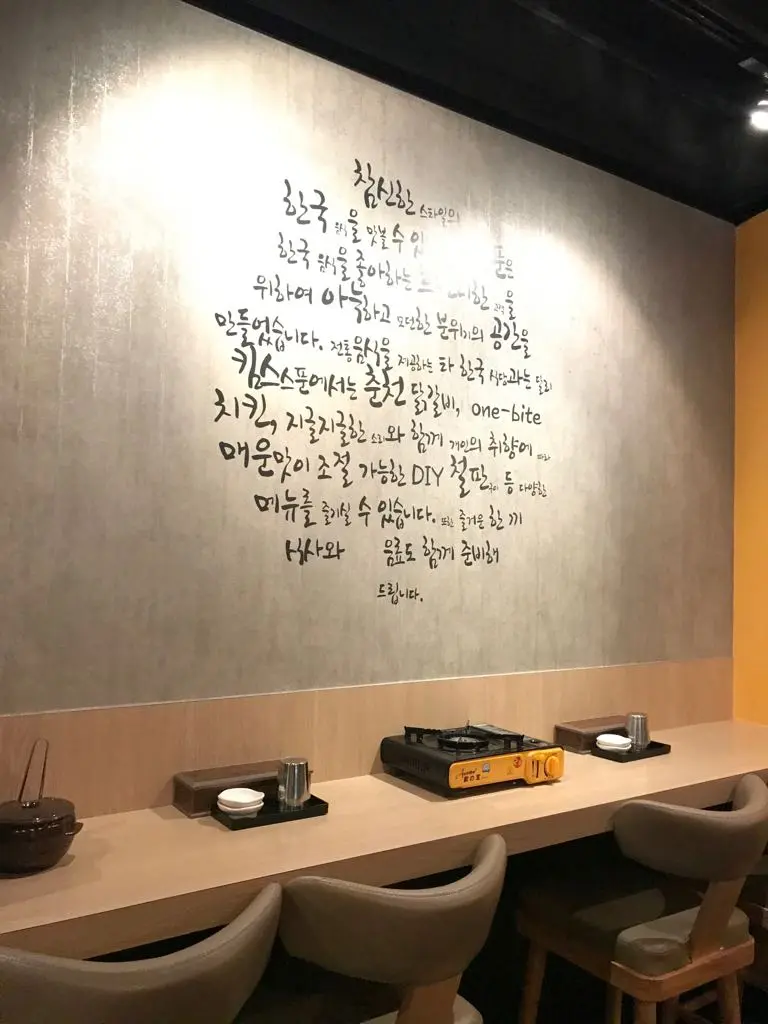 참신한 스타일의
한국 음식을 맛볼 수
한국 음식을 좋아하는 을
위하여 아늑하고 모던한 분위기의 공간을
만들었습니다. 전통음식을 제공하는 타 한국 식당과는 달리
킴스스푼에서는 춘천 닭갈비, one-bite
치킨, 지글지글한 소리와 함께 개인의 취향에 따라
매운맛이 조절 가능한 DIY 철판구이 등 다양한
메뉴를 즐기실 수 있습니다. 또한 즐거운 한 끼
식사와 음료도 함께 준비해
드립니다.